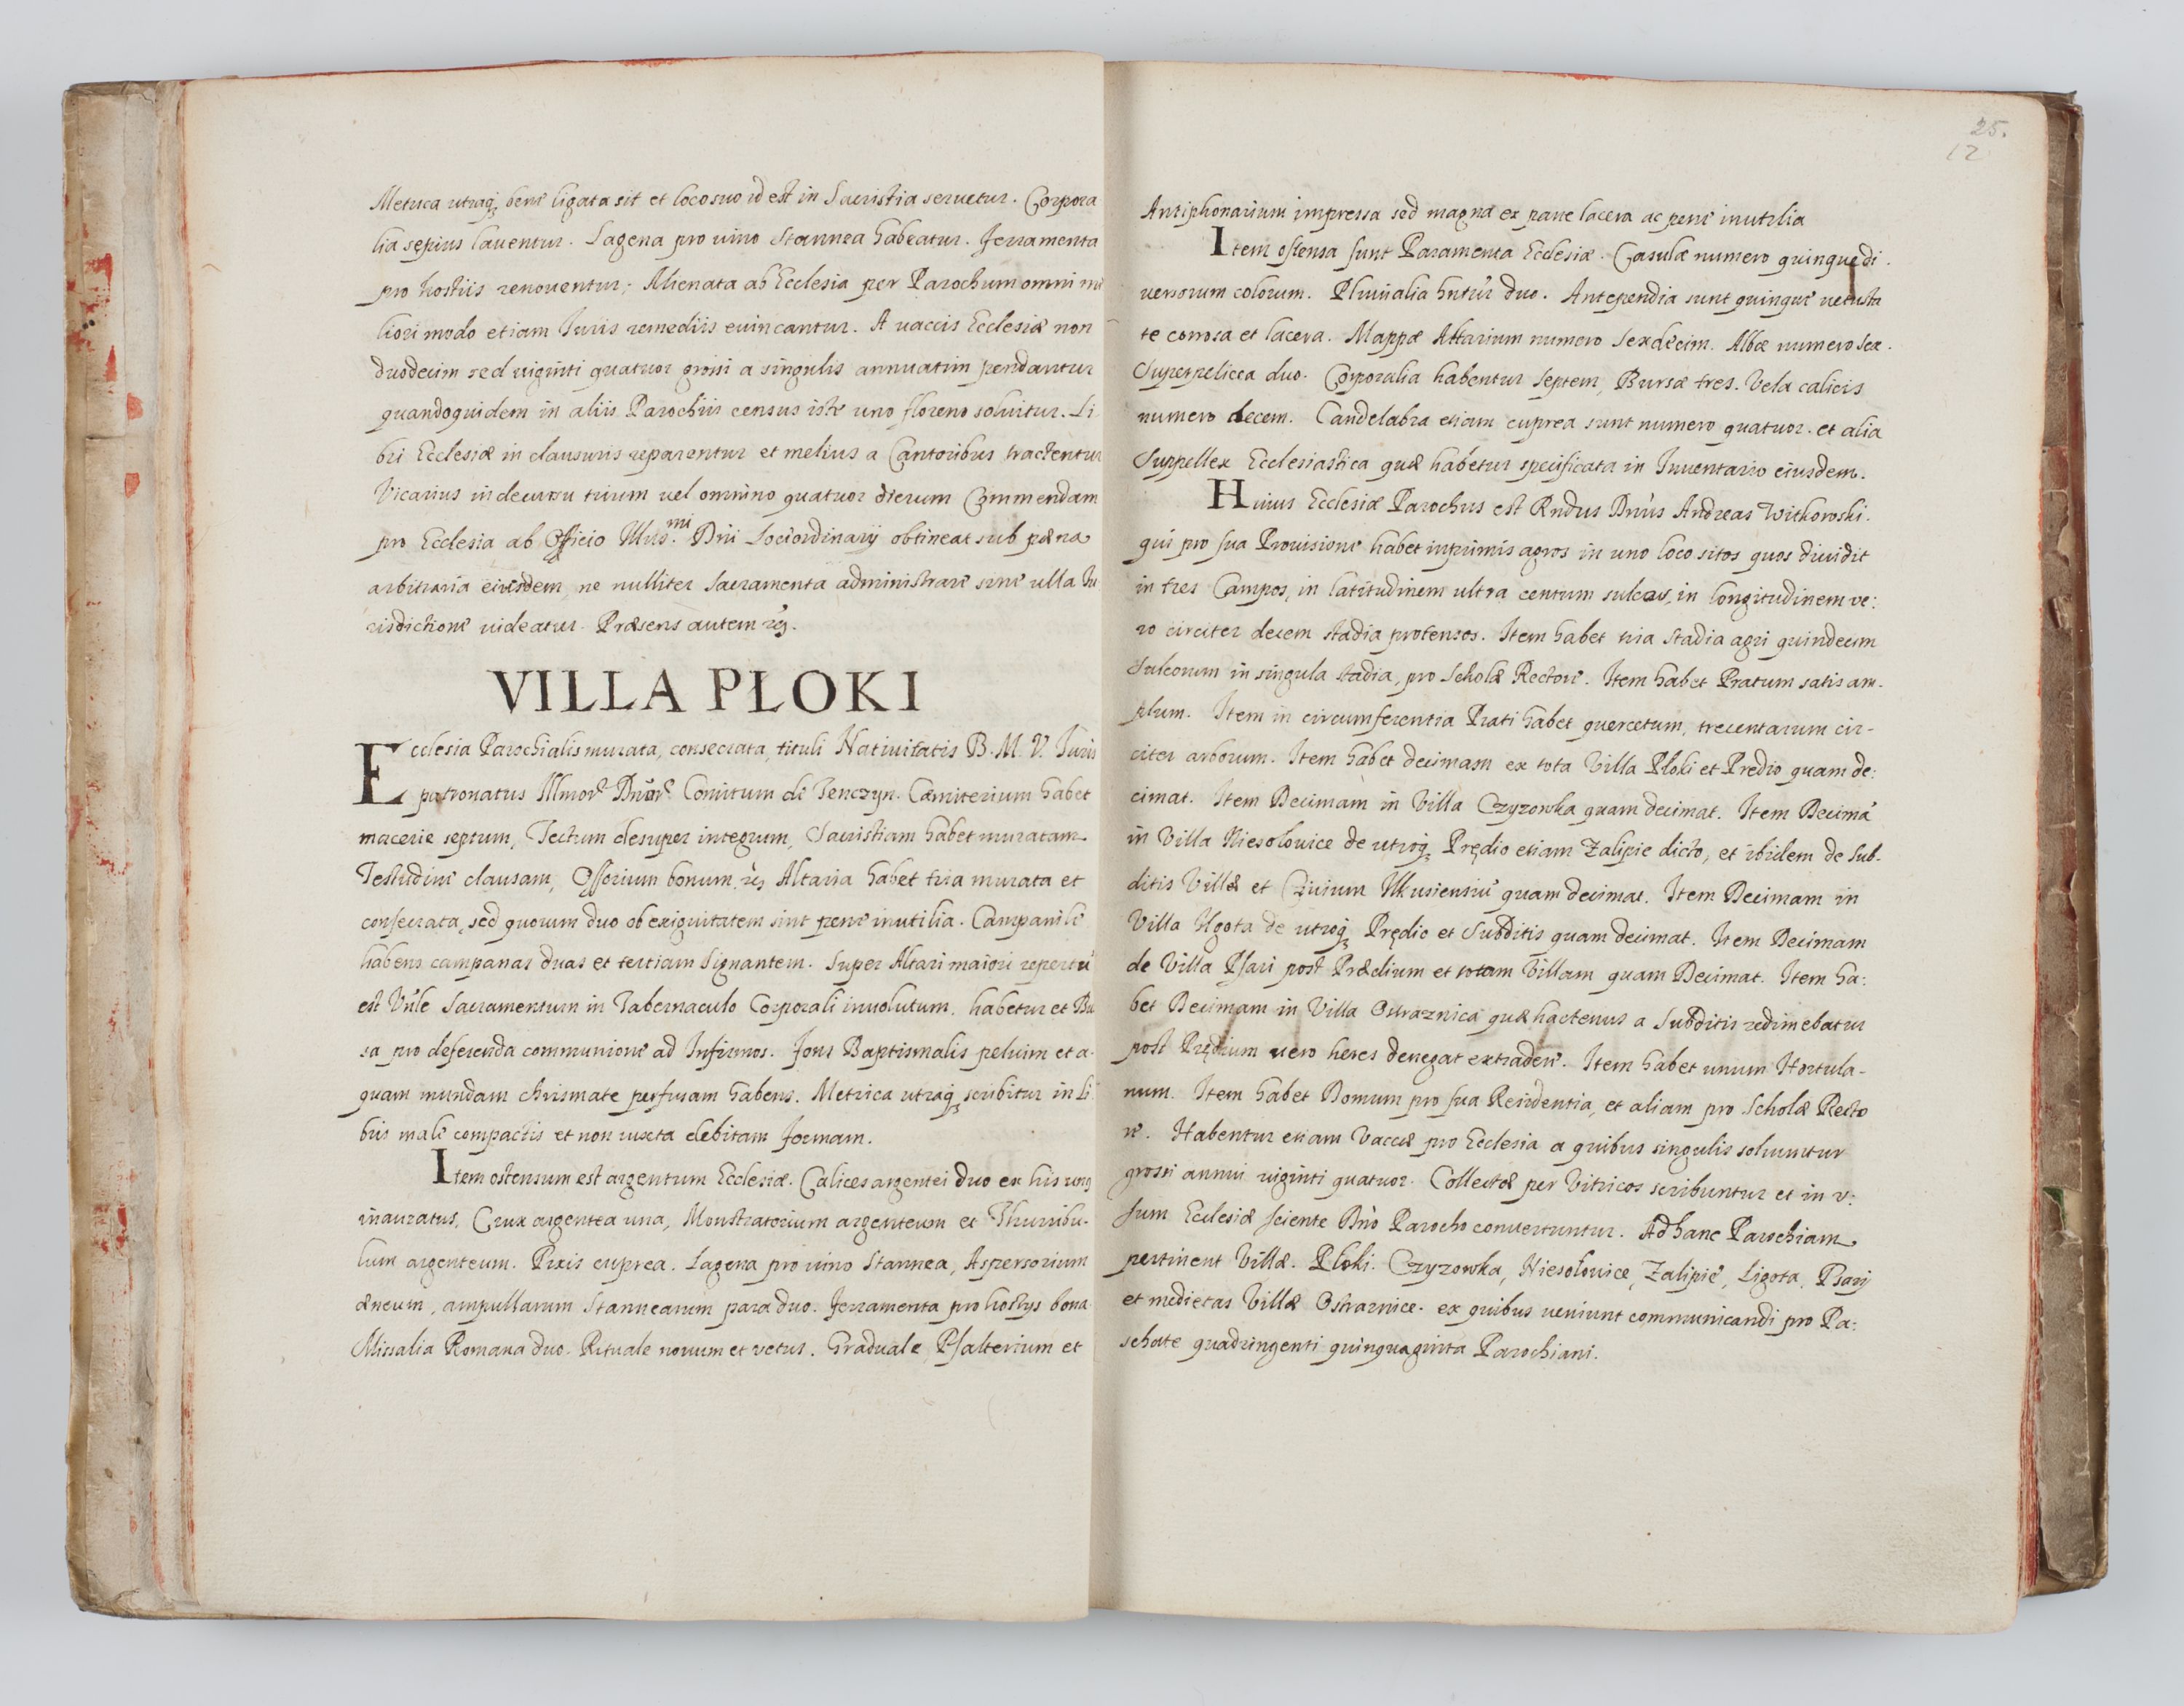 Metrica utraq₃ bene ligata sit et loco suo id est in Sacristia seruetur. Corpora
lia sępius lauentur. Lagena pro uino Stannea habeatur. Ferramenta
pro hostiis renouentur; Alienata ab Ecclesia per Parochum omni me
liori modo etiam Iuris remediis euincantur. A uaccis Ecclesiæ non
duodecim sed uiginti quatuor grossi a singulis annuatim pendantur
quandoquidem in aliis Parochiis census iste uno floreno soluitur. Li
bri Ecclesiæ in clausuris reparentur et melius a Cantoribus tractentur
Vicarius in decursu trium uel omnino quatuor dierum Commendam
pro Ecclesia ab Officio Illus.mi Dni Lociordinarij obtineat sub pæna
arbitraria eiusdem, ne nulliter Sacramenta administrare sine ulla Iu
risdictione uideatur. Præsens autem
VILLA PŁOKI
Ecclesia Parochialis murata, consecrata, tituli Natiuitatis B. M. V. Iuris
patronatus Illmor. Dnor. Comitum de Tenczyn. Cæmiterium habet
macerie septum, Tectum desuper integrum, Sacristiam habet muratam
Testudine clausam, Ossorium bonum, Altaria habet tria murata et
consecrata, sed quorum duo ob exiguitatem sint pene inutilia. Campanile
habens campanas duas et tertiam Signantem. Super Altari maiori repertũ
est Vnle Sacramentum in Tabernaculo Corporali inuolutum. habetur et Bu
sa pro deferenda communione ad Infirmos. Fons Baptismalis peluim et a-
quam mundam chrismate perfusam habens. Metrica utraq₃ scribitur in Li
bris male compactis et non iuxta debitam formam.
Item ostensum est argentum Ecclesiæ. Calices argentei duo ex his unus
inauratus, Crux argentea una, Monstratorium argenteum et Thurribu-
lum argenteum. Pixis cuprea. Lagena pro uino Stannea, Aspersorium
æneum, ampullarum Stannearum para duo. Ferramenta pro hostys bona.
Missalia Romana duo. Rituale nouum et vetus. Graduale, Psalterium et
25.
12
Antiphonarium impressa sed magna ex parte lacera ac pene inutilia
Item ostensa sunt Paramenta Ecclesiæ. Casulæ numero quinque di.
uersorum colorum. Pluuialia hntur duo. Antependia sunt quinque uetusta
te corrosa et lacera. Mappæ Altarium numero Sexdecim. Albæ numero Sex.
Superpelicea duo. Corporalia habentur Septem, Bursæ tres. Vela calicis
numero decem. Candelabra etiam cuprea sunt numero quatuor. et alia
Suppellex Ecclesiastica quæ habetur specificata in Inuentario eiusdem.
Huius Ecclesiæ Parochus est Rndus Dnus Andreas Witkowski.
qui pro sua Prouisione habet inprimis agros in uno loco sitos quos diuidit
in tres Campos, in latitudinem ultra centum sulcas, in longitudinem ve:
ro circiter decem stadia protensos. Item habet tria Stadia agri quindecim
Sulcorum in singula stadia, pro Scholæ Rectore. Item habet Pratum satis am-
plum. Item in circumferentia Prati habet quercetum, trecentarum cir-
citer arborum. Item habet decimam ex tota Villa Płoki et Predio quam de:
cimat. Item Decimam in Villa Czyzowka quam decimat. Item Decimã
in Villa Niesołouice de utroq₃ Prędio etiam Zalipie dicto, et ibidem de Sub-
ditis Villæ et Ciuium Ilkusiensiũ quam decimat. Item Decimam in
Villa Ligota de utroq₃ Prędio et Subditis quam decimat. Item Decimam
de Villa Psari post Prædium et totam Villam quam Decimat. Item ha:
bet Decimam in Villa Ostraznica quæ hactenus a Subditis redimebatur
post Prędium uero heres denegat extradere. Item habet unum Hortula-
num. Item habet Domum pro sua Residentia, et aliam pro Scholæ Recto
re. Habentur etiam Vaccæ pro Ecclesia a quibus singulis soluuntur
grossi annui uiginti quatuor. Collectæ per Vitricos scribuntur et in v:
sum Ecclesiæ sciente Dno Parocho conuertuntur. Ad hanc Parochiam
pertinent Villæ. Płoki. Czyzowka, Niesołouice, Zalipie, Ligota, Psari
et medietas Villæ Ostraznice. ex quibus ueniunt communicandi pro Pa:
schate quadringenti quinquaginta Parochiani.